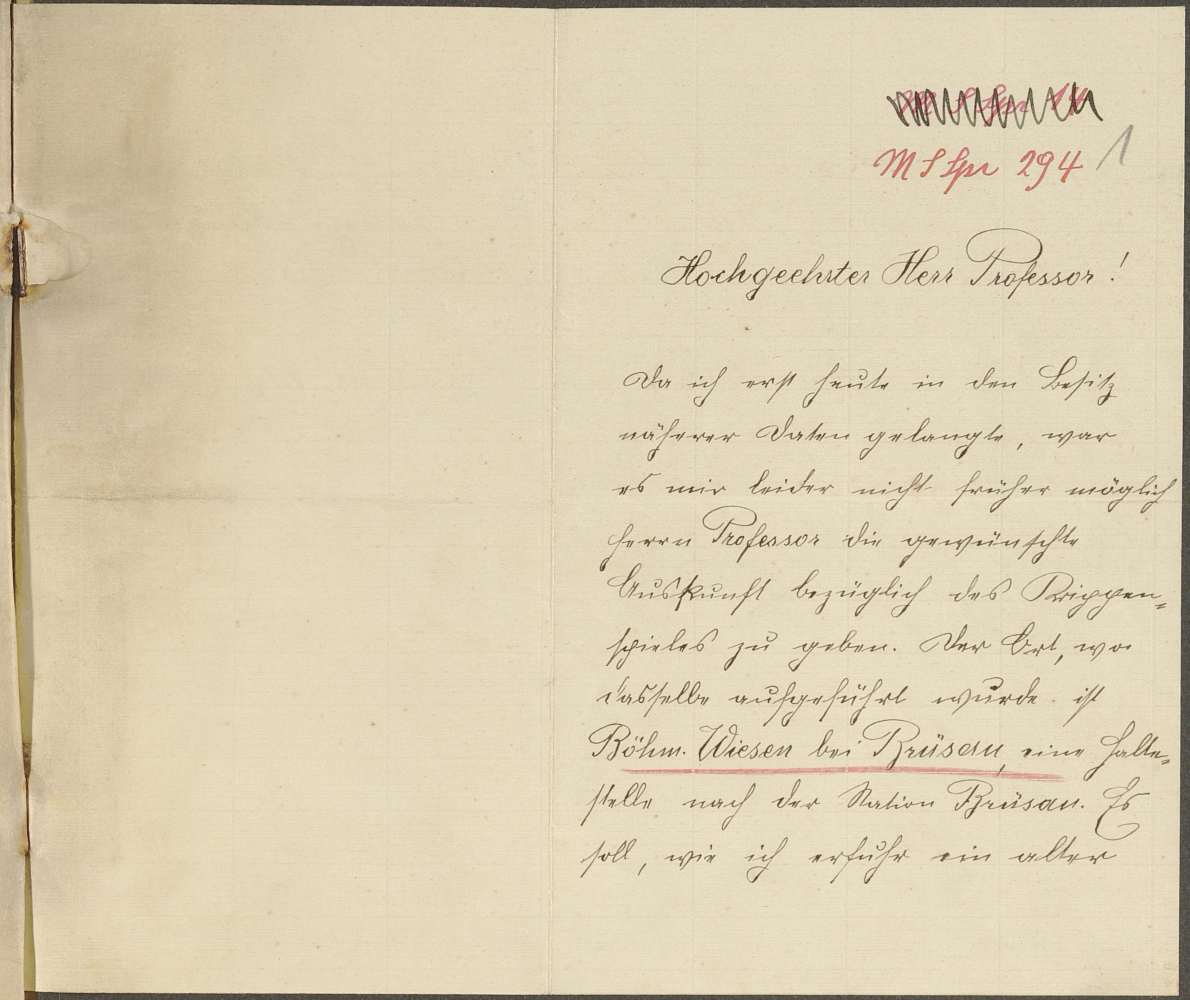 M S Spr 294 1
Hochgeehrter Herr Professor!
Da ich erst heute in den Besitz
näherer Daten gelangte, war
es mir leider nicht früher möglich
Herrn Professor die gewünschte
Auskunft bezüglich des Krippen-
spieles zu geben. Der Ort, wo
dasselbe aufgeführt wurde ist
Böhm. Wiesen bei Brüsau, eine Halte-
stelle nach der Station Brüsau. Es
soll, wie ich erfuhr ein alter